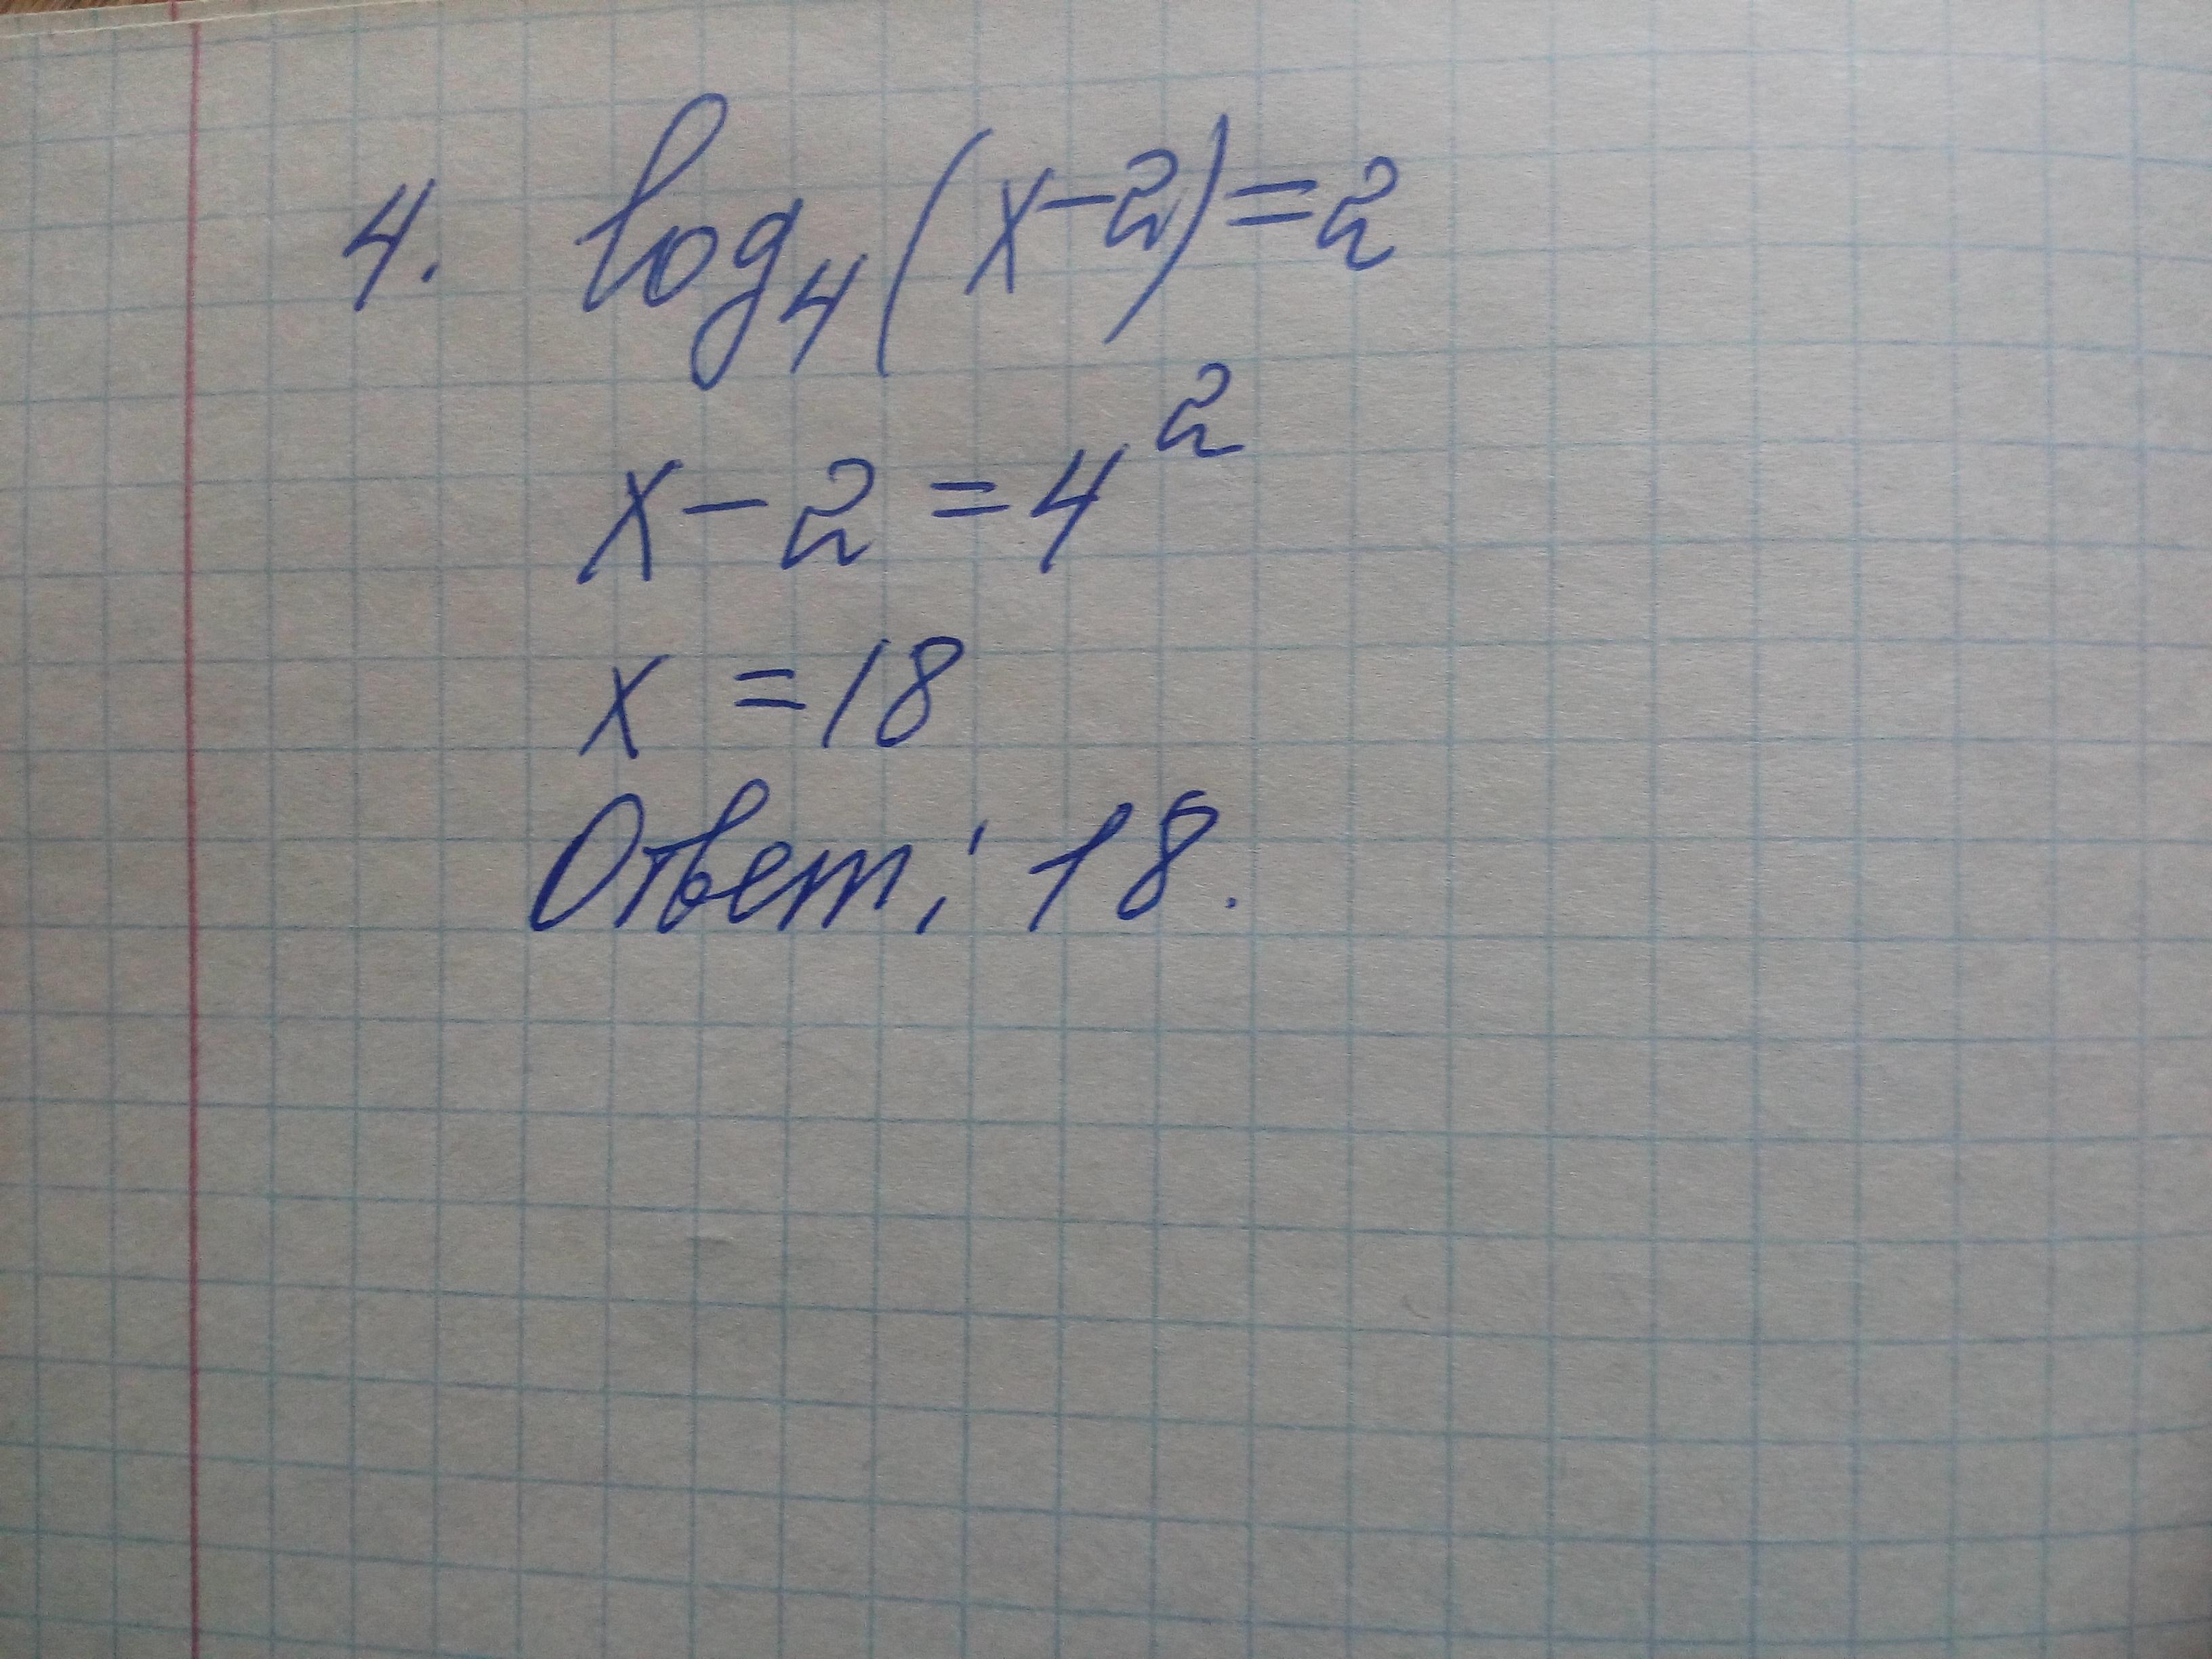 4. log₄(x-2)=2
x-2=4²
x=18
Ответ: 18.